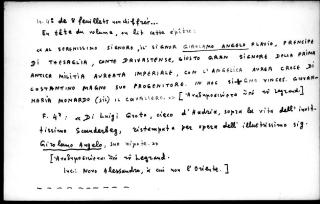 in-4° de 8 feuillets non chiffrés...
En tête du volume, on lit cette épître:
« AL SERENISSIMO SIGNORE, IL SIGNOR GIROLAMO ANGELO FLAVIO, PRENCIPE
DI TOESAGLIA, CONTE DRIVASTENSE, GIUSTO GRAN SIGNORE DELLA PRIMA
ANTICA MILITIA AUREATA IMPERIALE, CON L'ANGELICA AUREA CROCE DI
COSTANTINO MAGNO SUO PROGENITORE. IN HOC SIGNO VINCES. GIOVAN
MARIA MONARDO (sic) IL CAVALIERE. » [Ἀναδημοσίευσις ὑπὸ τοῦ Legrand]
F. 4ª: « Di Luigi Groto, cieco d'Hadria, sopra la vita dell'invit-
tissimo Scanderbeg, ristampata per opera dell'illustrissimo sig.
Girolamo Angelo, suo nipote. »
[Ἀναδημοσίευσις ὑπὸ τοῦ Legrand.
Inc: Novo Alessandro, a cui non l'Oriente. ]